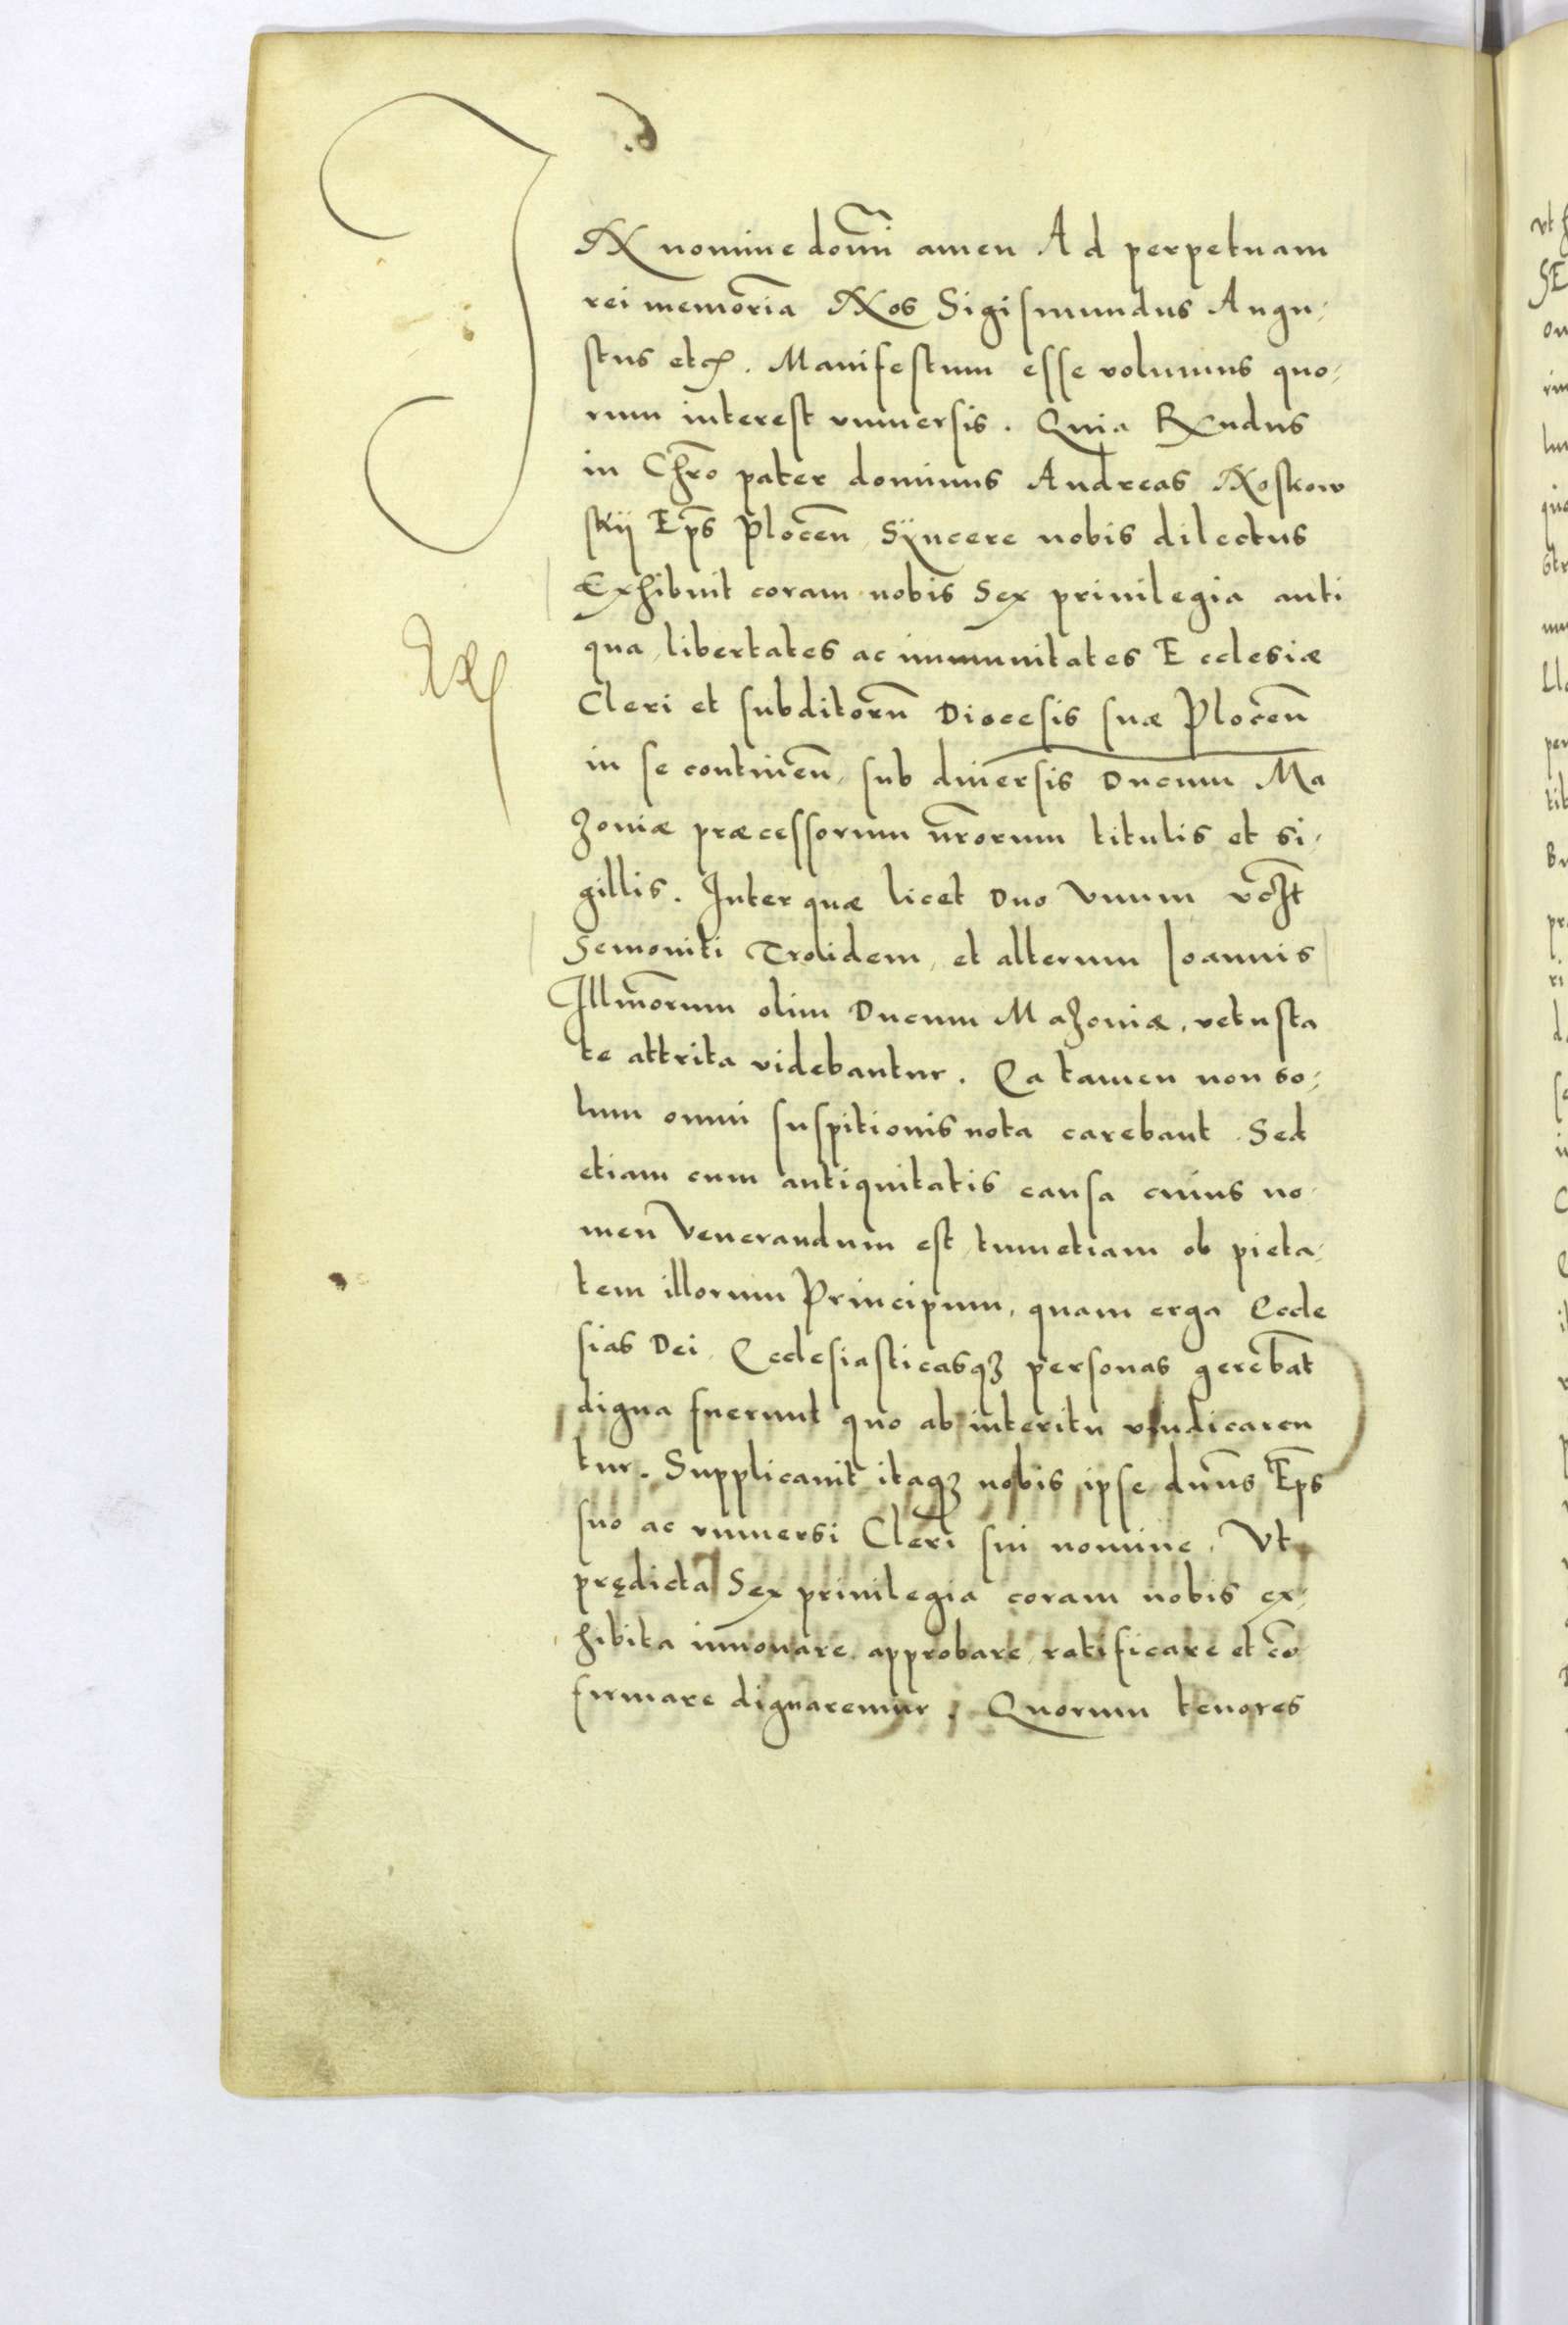 IN nomine domi͞ni amen Ad perpetuam
rei memoria͞ Nos Sigismundus Augu-
stus etc. Manifestum esse volumus quo-
rum interest vniuersis. Quia R͞ndus
in Chr͞o pater dominus Andreas Noskow
skij Ep͞s Plocen͞, Sÿncere nobis dilectus
Exhibuit coram nobis Sex priuilegia anti
qua, libertates ac immunitates Ecclesiæ
Cleri et subditoru͞ Diocesis suæ Plocen͞
in se continen͞, sub diuersis Ducum Ma
Zoniæ præcessorum nr͞orum titulis et si-
gillis. Inter quæ licet Duo Vnum vc͞zt
Semoniti Trolidem, et alterum Ioannis
Illm͞orum olim Ducum MaZoniæ, vetusta
te attrita videbantur. Ea tamen non so-
lum omni suspitionis nota carebant. Sed
etiam cum antiquitatis causa cuius no-
men Venerandum est, tumetiam ob pieta-
tem illorum Principum, quam erga Eccle
sias Dei, Ecclesiasticasqꝫ personas gereba͞t
digna fuerunt quo ab interitu vindicaren
tur. Supplicauit itaqꝫ nobis ipse dn͞us Ep͞s
suo ac vniuersi Cleri sui nomine, Vt
prędicta Sex priuilegia coram nobis ex-
hibita innouare, approbare, ratificare et co͞
firmare dignaremur. Quorum tenores